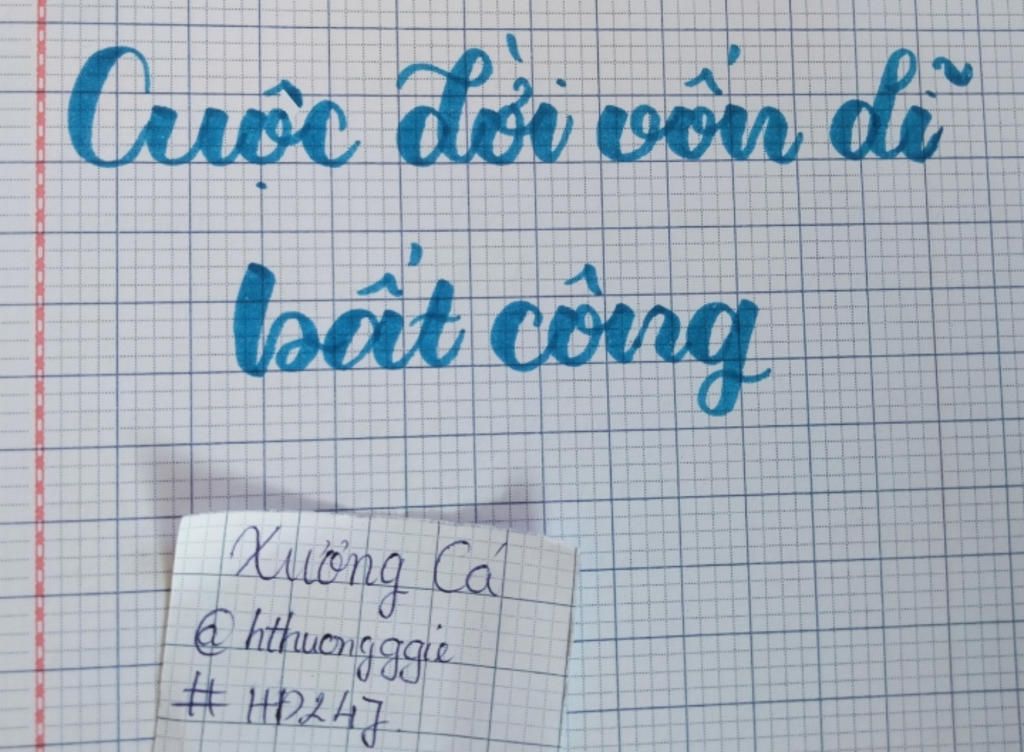 Cuộc đời vốn dĩ
bất công
Xương Cá
@hthuongggie
#HD247